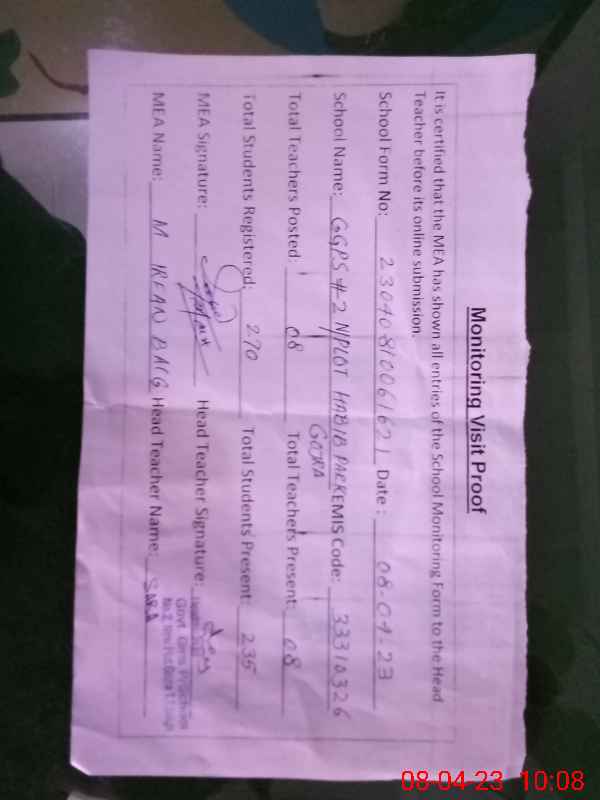 Monitoring Visit Proof
It is certified that the MEA has shown all entries of the School Monitoring Form to the Head
Teacher before its online submission.
School Form No: 23040810061621 Date: 08-04-23
School Name: GGPS #2 N/PLOT HABIB PARK EMIS Code: 33310326
GOJRA
Total Teachers Posted: 08 Total Teachers Present: 08
Total Students Registered: 270 Total Students Present: 235
MEA Signature: Head Teacher Signature:
MEA Name: M IRFAN BAIG Head Teacher Name: SARA
Govt. Girls
No.2
08-04-23 10:08